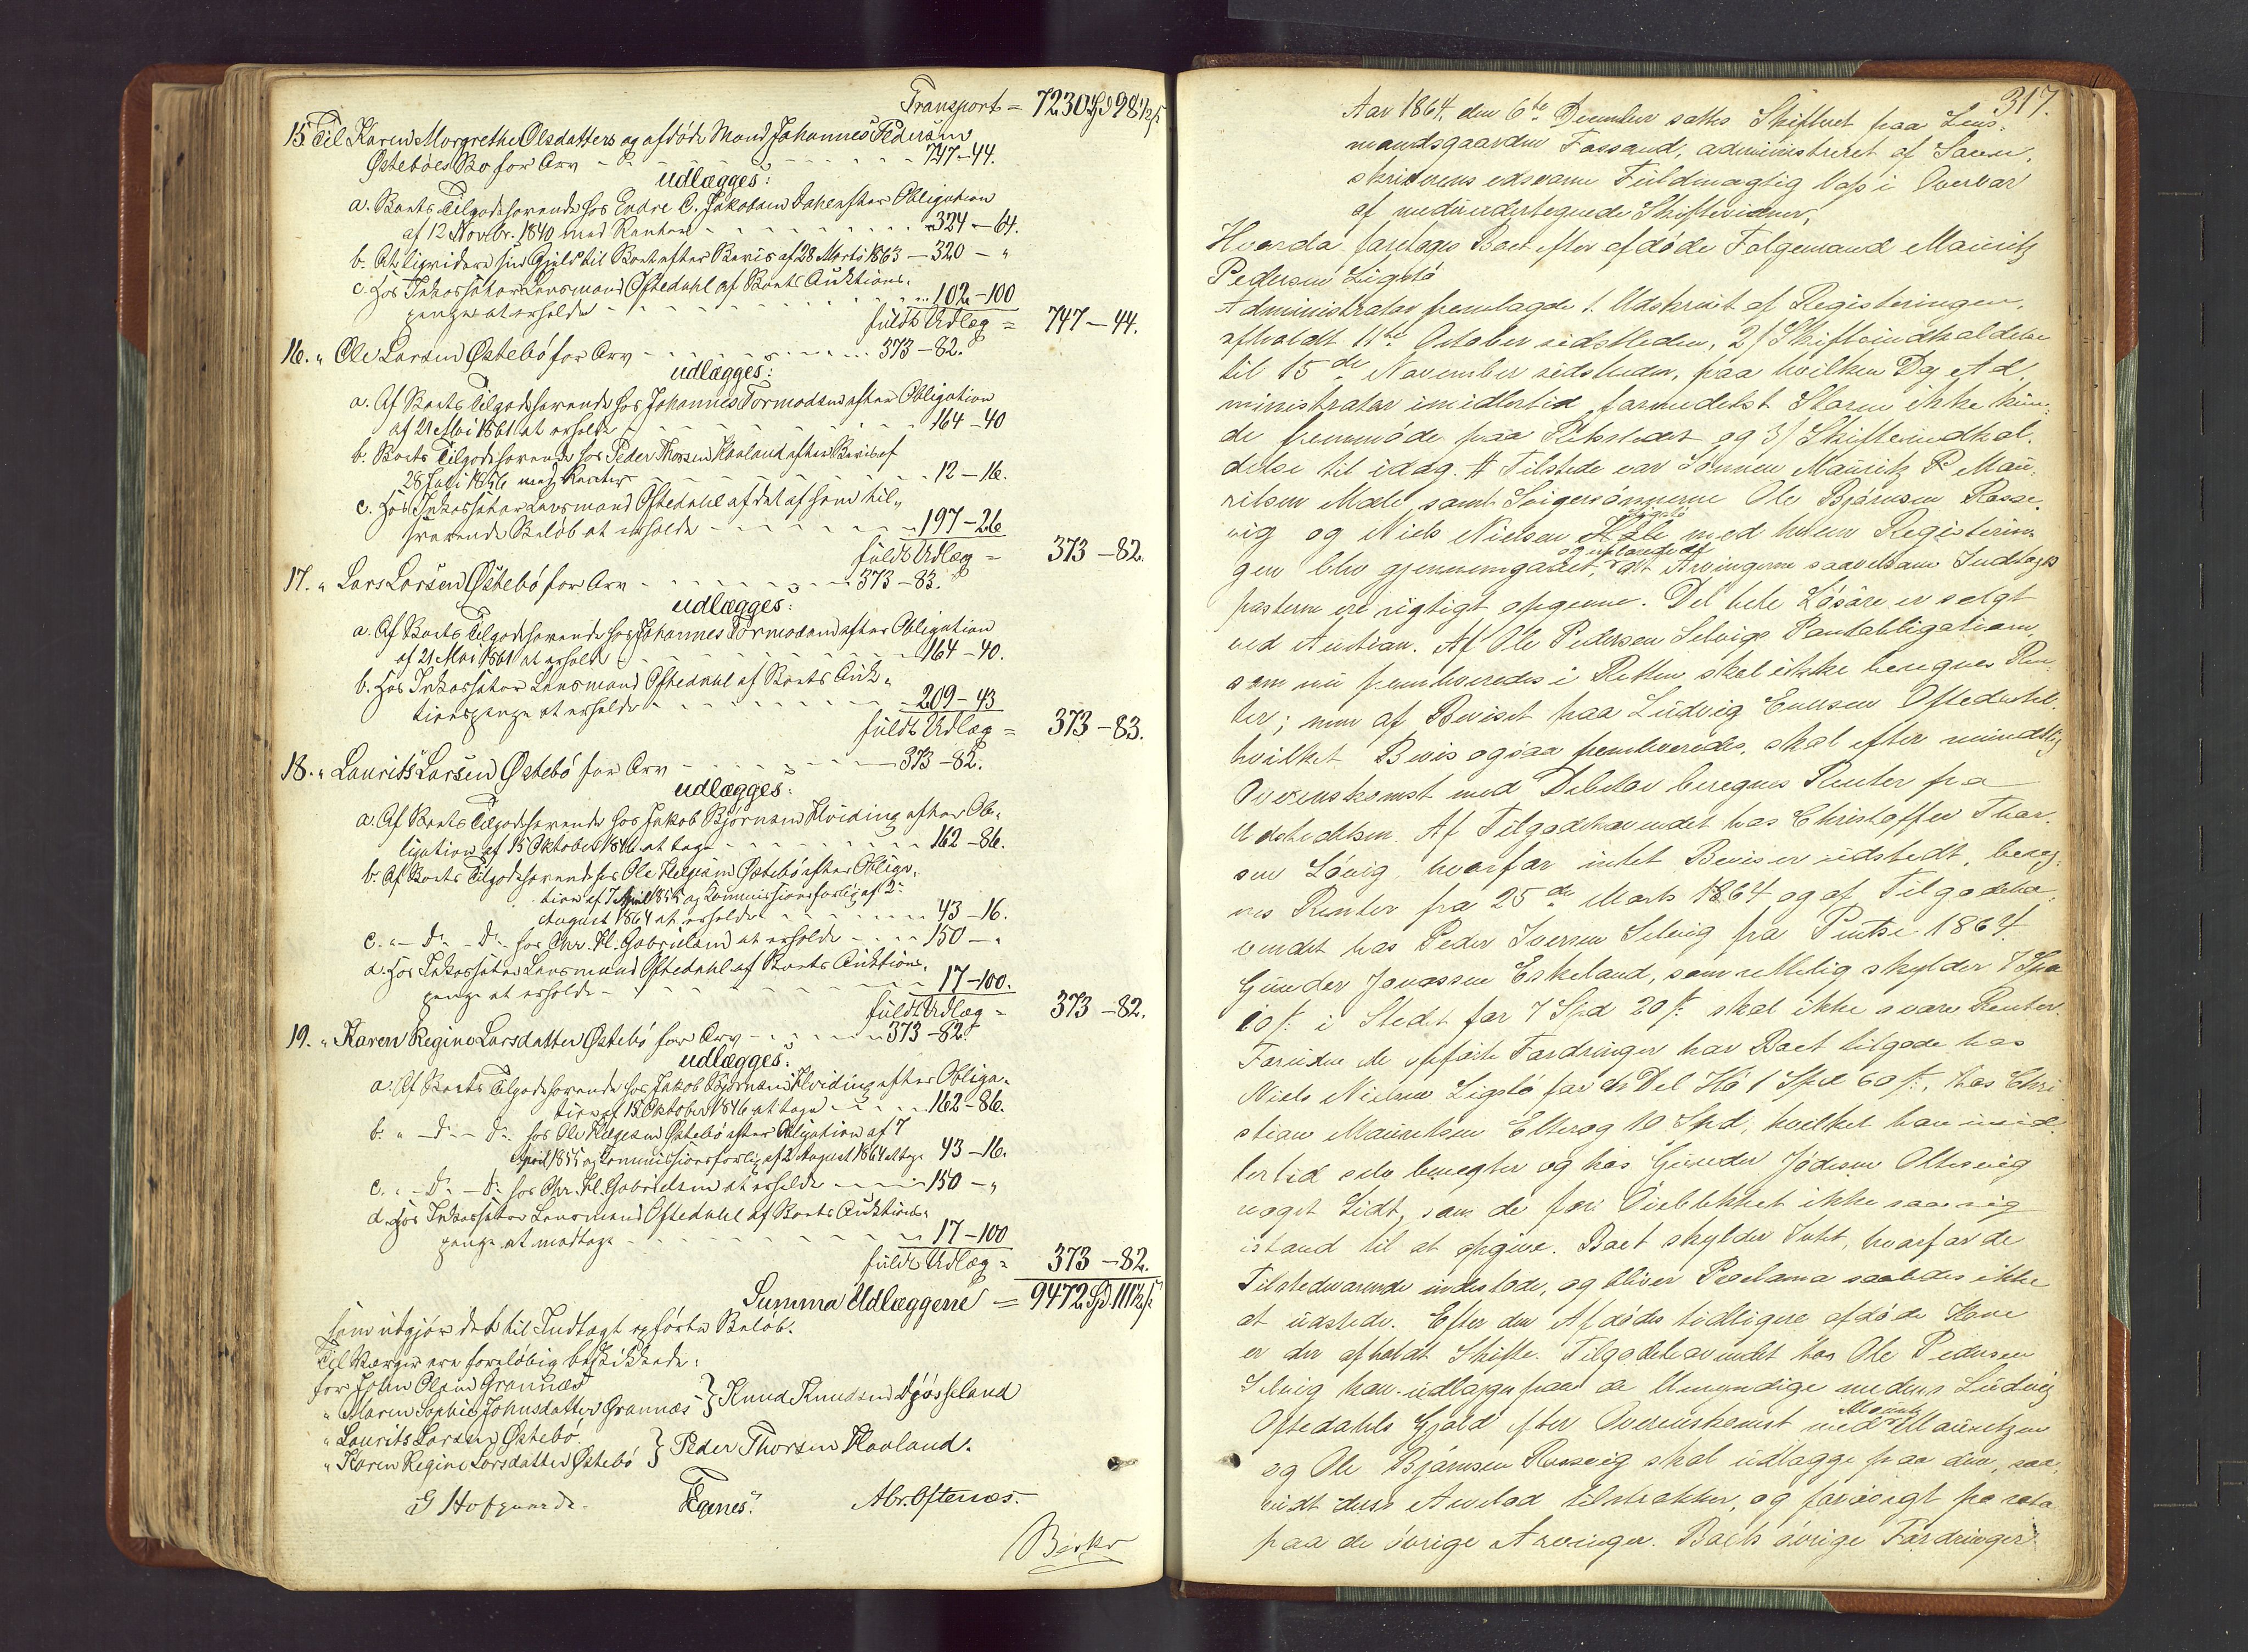 Transport = 7230 Spd 98 1/2 s
15. Til Karen Margrethe Olsdatters og afdøde Mand Johannes Pedersen
Østebøes Bo for Arv - - - - - - 747-44.
udlægges:
a. Boets Tilgodehavende hos Endre C. Jakobsen Dahl efter Obligation
af 12 Novbr. 1840 med Renter - - - - 324-64.
b. At liqvidere sin Gjeld til Boet efter Bevis af 28 Marts 1863 - 320 - "
c. Hos Inkassator Lensmand Oftedahl af Boets Auktions-
penge at erholde - - - - - 102-100
fuldt Udlæg = 747-44.
16. " Ole Larsen Østebø for Arv - - - - - 373-82.
udlægges:
a. Af Boets Tilgodehavende hos Johannes Tormodsen efter Obligation
af 21 Mai 1861 at erholde - - - - - 164-40
b. Boets Tilgodehavende hos Peder Thorsen Havland efter Bevis af
28 Juli 1856 med Renter - - - - - 12-16.
c. Hos Inkassator Lensmand Oftedahl af det af ham til-
svarende Beløb at erholde - - - - - 197-26
fuldt Udlæg = 373-82.
17. " Lars Larsen Østebø for Arv - - - - - 373-83.
udlægges:
a. Af Boets Tilgodehavende hos Johannes Tormodsen efter Obligation
af 21 Mai 1861 at erholde - - - - - 164-40.
b. Hos Inkassator Lensmand Oftedahl af Boets Auk-
tionspenge at erholde - - - - - 209-43
fuldt Udlæg = 373-83.
18. " Laurits Larsen Østebø for Arv - - - - - 373-82.
udlægges:
a. Af Boets Tilgodehavende hos Jakob Bjørnsen Hviding efter Ob-
ligation af 15 Oktober 1846 at tage - - - - - 162-86.
b. Af Boets Tilgodehavende hos Ole Helgesen Østebø efter Obliga-
tion af 7 April 1855 og Kommissionsforlig af 2
August 1864 at erholde - - - - - 43-16.
c. " - Do - Do - hos Chr. Hl. Gabrielsen at erholde - - - - 150 - "
d. Hos Inkassator Lensmand Oftedahl af Boets Auktions-
penge at erholde - - - - - 17-100.
fuldt Udlæg = 373-82.
19. " Karen Regine Larsdatter Østebø for Arv - - - - 373-82.
udlægges:
a. Af Boets Tilgodehavende hos Jakob Bjørnsen Hviding efter Obliga-
tion af 15 Oktober 1846 at tage - - - - 162-86.
b. " - Do - Do hos Ole Helgesen Østebø efter Obligation af 7
April 1855 og Kommissionsforlig af 2 August 1864 at tage 43-16.
c. " - Do - Do hos Chr. Hl. Gabrielsen at erholde - - - - 150 - "
d. Hos Inkassator Lensmand Oftedahl af Boets Auktions-
penge at modtage - - - - - 17-100
fuldt Udlæg = 373-82.
Summa Udlæggene = 9472 Spd 111 1/2 s
som utgjør det til Indtægt opførte Beløb.
Til Værger ere foreløbig beskikkede:
for John Olsen Grannæs
" Maren Sophie Johnsdatter Grannæs } Knud Knudsen Djøsseland
" Laurits Larsen Østebø
" Karen Regine Larsdatter Østebø } Peder Thorsen Havland.
G Hofgaard. Egenes. Abr. Oftenæs.
317.
Aar 1864, den 6te December sattes Skifteret paa Lens-
mandsgaarden Fossand, administreret af Soren-
skriverens edsvorne Fuldmægtig Vass i Overvær
af medundertegnede Skiftevidner,
Hvorda foretoges Boet efter afdøde Følgemand Mauritz
Pedersen Ligstø
Administrator fremlagde 1. Udskrivt af Registeringen,
afholdt 11te October sidstleden, 2/ Skifteindkaldelse
til 15de November sidstleden, paa hvilken Dag Ad-
ministrator imidlertid formedelst Storm ikke kun-
de fremmøde paa Retsstedet og 3/ Skifteindkal-
delse til idag. # Tilstede var Sønnen Mauritz P. Mau-
ritsen Mæle samt Svigersønnerne Ole Bjørnsen Rosse-
vig og Niels Nielsen Ligstø med hvem Registerin-
gen blev gjennemgaaet, og oplyste de at Arvingerne saavelsom Indtægts
posterne ere rigtigt opgivne. Det hele Løsøre er solgt
ved Auction. Af Ole Pedersen Selvigs Pantobligation
som nu fremleveredes i Retten skal ikke beregnes Ren-
ter; men af Beviset paa Ludvig Enersen Oftedahl,
hvilket Bevis ogsaa fremleveredes, skal efter mundtlig
Overenskomst med Debitor beregnes Renter fra
Udstedelsen. Af Tilgodehavendet hos Christoffer Thor-
sen Løvig, hvorfor intet Bevis er udstedt, bereg-
nes Renter fra 25de Marts 1864 og af Tilgodeha-
vendet hos Peder Iversen Selvig fra Pintse 1864.
Gunder Jonassen Eskeland, som rettelig skylder 7 Spd
10 s i Stedet for 7 Spd 20 s skal ikke svare Renter.
Foruden de opførte Fordringer har Boet tilgode hos
Niels Nielsen Ligstø for en Del Hø 1 Spd 60 s, hos Chri-
stian Mauritsen Eltervog 10 Spd, hvilket han imid-
lertid selv benegter og hos Gunder Jødesen Oltesvig
noget Lidt, som de for Øieblikket ikke saa sig
istand til at opgive. Boet skylder Intet, hvorfor de
Tilstedeværende indestode, og bliver Proclama saaledes ikke
at udstede. Efter den Afdødes tidligere afdøde Kone
er der afholdt Skifte. Tilgodehavendet hos Ole Pedersen
Selvig kan udlægges paa de Umyndige medens Ludvig
Oftedahls Gjæld efter Overenskomst med Maurits Mauritzen
og Ole Bjørnsen Rossevig skal udlægges paa dem, saa-
vidt deres Arvelod tilstrækker, og forøvrigt pro rata
paa de øvrige Arvinger. Boets øvrige Fordringer